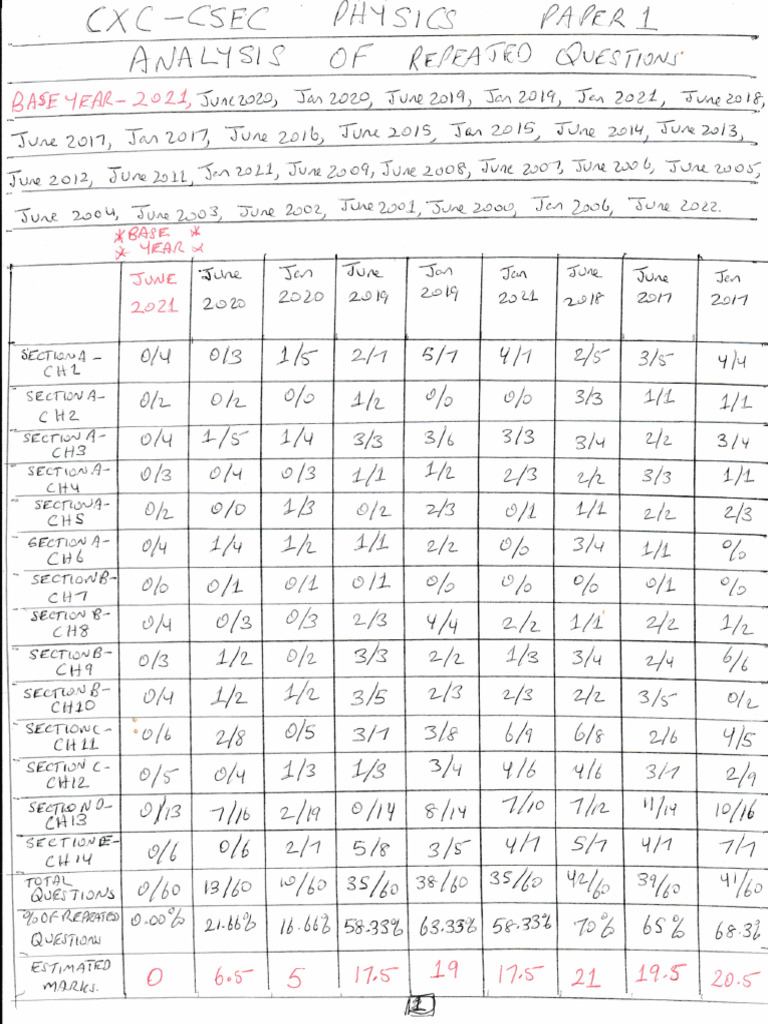 CXC-CSEC PHYSICS PAPER 1
ANALYSIS OF REPEATED QUESTIONS
BASE YEAR - 2021, June 2020, Jan 2020, June 2019, Jan 2019, Jan 2021, June 2018,
June 2017, Jan 2017, June 2016, June 2015, Jan 2015, June 2014, June 2013,
June 2012, June 2011, Jan 2011, June 2009, June 2008, June 2007, June 2006, June 2005,
June 2004, June 2003, June 2002, June 2001, June 2000, Jan 2006, June 2022.
*BASE *
* YEAR *
JUNE 2021 June 2020 Jan 2020 June 2019 Jan 2019 Jan 2021 June 2018 June 2017 Jan 2017
SECTION A - CH1 0/4 0/3 1/5 2/7 5/7 4/7 2/5 3/5 4/4
SECTION A - CH2 0/2 0/2 0/0 1/2 0/0 0/0 3/3 1/1 1/1
SECTION A - CH3 0/4 1/5 1/4 3/3 3/6 3/3 3/4 2/2 3/4
SECTION A - CH4 0/3 0/4 0/3 1/1 1/2 2/3 2/2 3/3 1/1
SECTION A - CH5 0/2 0/0 1/3 0/2 2/3 0/1 1/1 2/2 2/3
SECTION A - CH6 0/4 1/4 1/2 1/1 2/2 0/0 3/4 1/1 0/0
SECTION B - CH7 0/0 0/1 0/1 0/1 0/0 0/0 0/0 0/1 0/0
SECTION B - CH8 0/4 0/3 0/3 2/3 4/4 2/2 1/1 2/2 1/2
SECTION B - CH9 0/3 1/2 0/2 3/3 2/2 1/3 3/4 2/4 6/6
SECTION B - CH10 0/4 1/2 1/2 3/5 2/3 2/3 2/2 3/5 0/2
SECTION C - CH11 0/6 2/8 0/5 3/7 3/8 6/9 6/8 2/6 4/5
SECTION C - CH12 0/5 0/4 1/3 1/3 3/4 4/6 4/6 3/7 2/9
SECTION D - CH13 0/13 7/16 2/19 0/14 8/14 7/10 7/12 11/14 10/16
SECTION E - CH14 0/6 0/6 2/7 5/8 3/5 4/7 5/7 4/7 7/7
TOTAL QUESTIONS 0/60 13/60 10/60 35/60 38/60 35/60 42/60 39/60 41/60
% OF REPEATED QUESTIONS 0.00% 21.66% 16.66% 58.33% 63.33% 58.33% 70% 65% 68.3%
ESTIMATED MARKS. 0 6.5 5 17.5 19 17.5 21 19.5 20.5
1